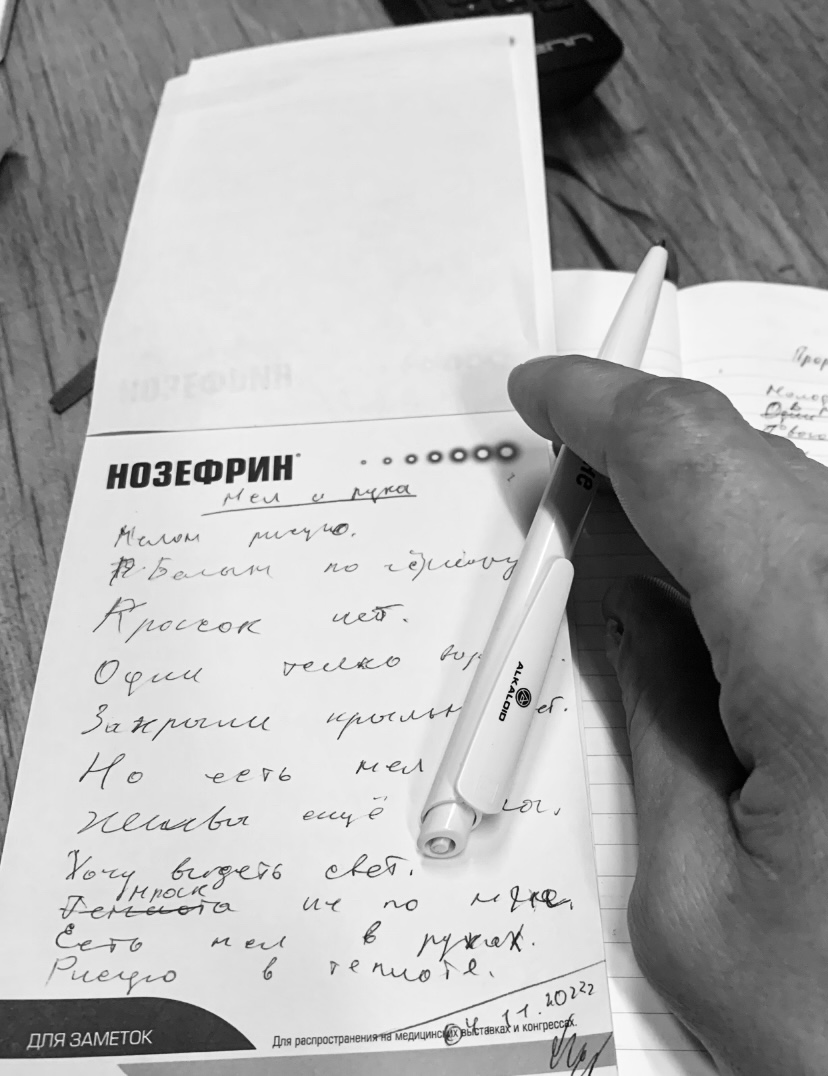 НОЗЕФРИН
Мел и рука
Мелом рисую.
Белым по чёрному
Красок нет.
Одни только
Закрыли крыльями ет.
Но есть мел
Живы ещё
Хочу видеть свет.
мрак
Темнота не по мне.
Есть мел в руках.
Рисую в темноте.
04.11.2022г
ДЛЯ ЗАМЕТОК
Для распространения на медицинских выставках и конгрессах.
ALKALOID